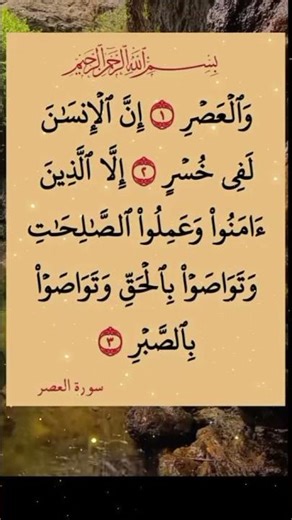 بِسْمِ ٱللَّهِ ٱلرَّحْمَٰنِ ٱلرَّحِيمِ
وَٱلْعَصْرِ ١ إِنَّ ٱلْإِنسَٰنَ
لَفِى خُسْرٍ ٢ إِلَّا ٱلَّذِينَ
ءَامَنُوا۟ وَعَمِلُوا۟ ٱلصَّٰلِحَٰتِ
وَتَوَاصَوْا۟ بِٱلْحَقِّ وَتَوَاصَوْا۟
بِٱلصَّبْرِ ٣
سورة العصر